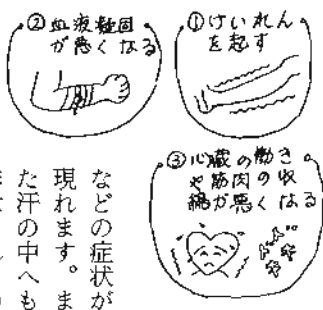 ①けいれん
を起す
②血液凝固
が悪くなる
③心臓の働き
や筋肉の収
縮が悪くなる
ドキドキ
などの症状が
現れます。ま
た汗の中へも